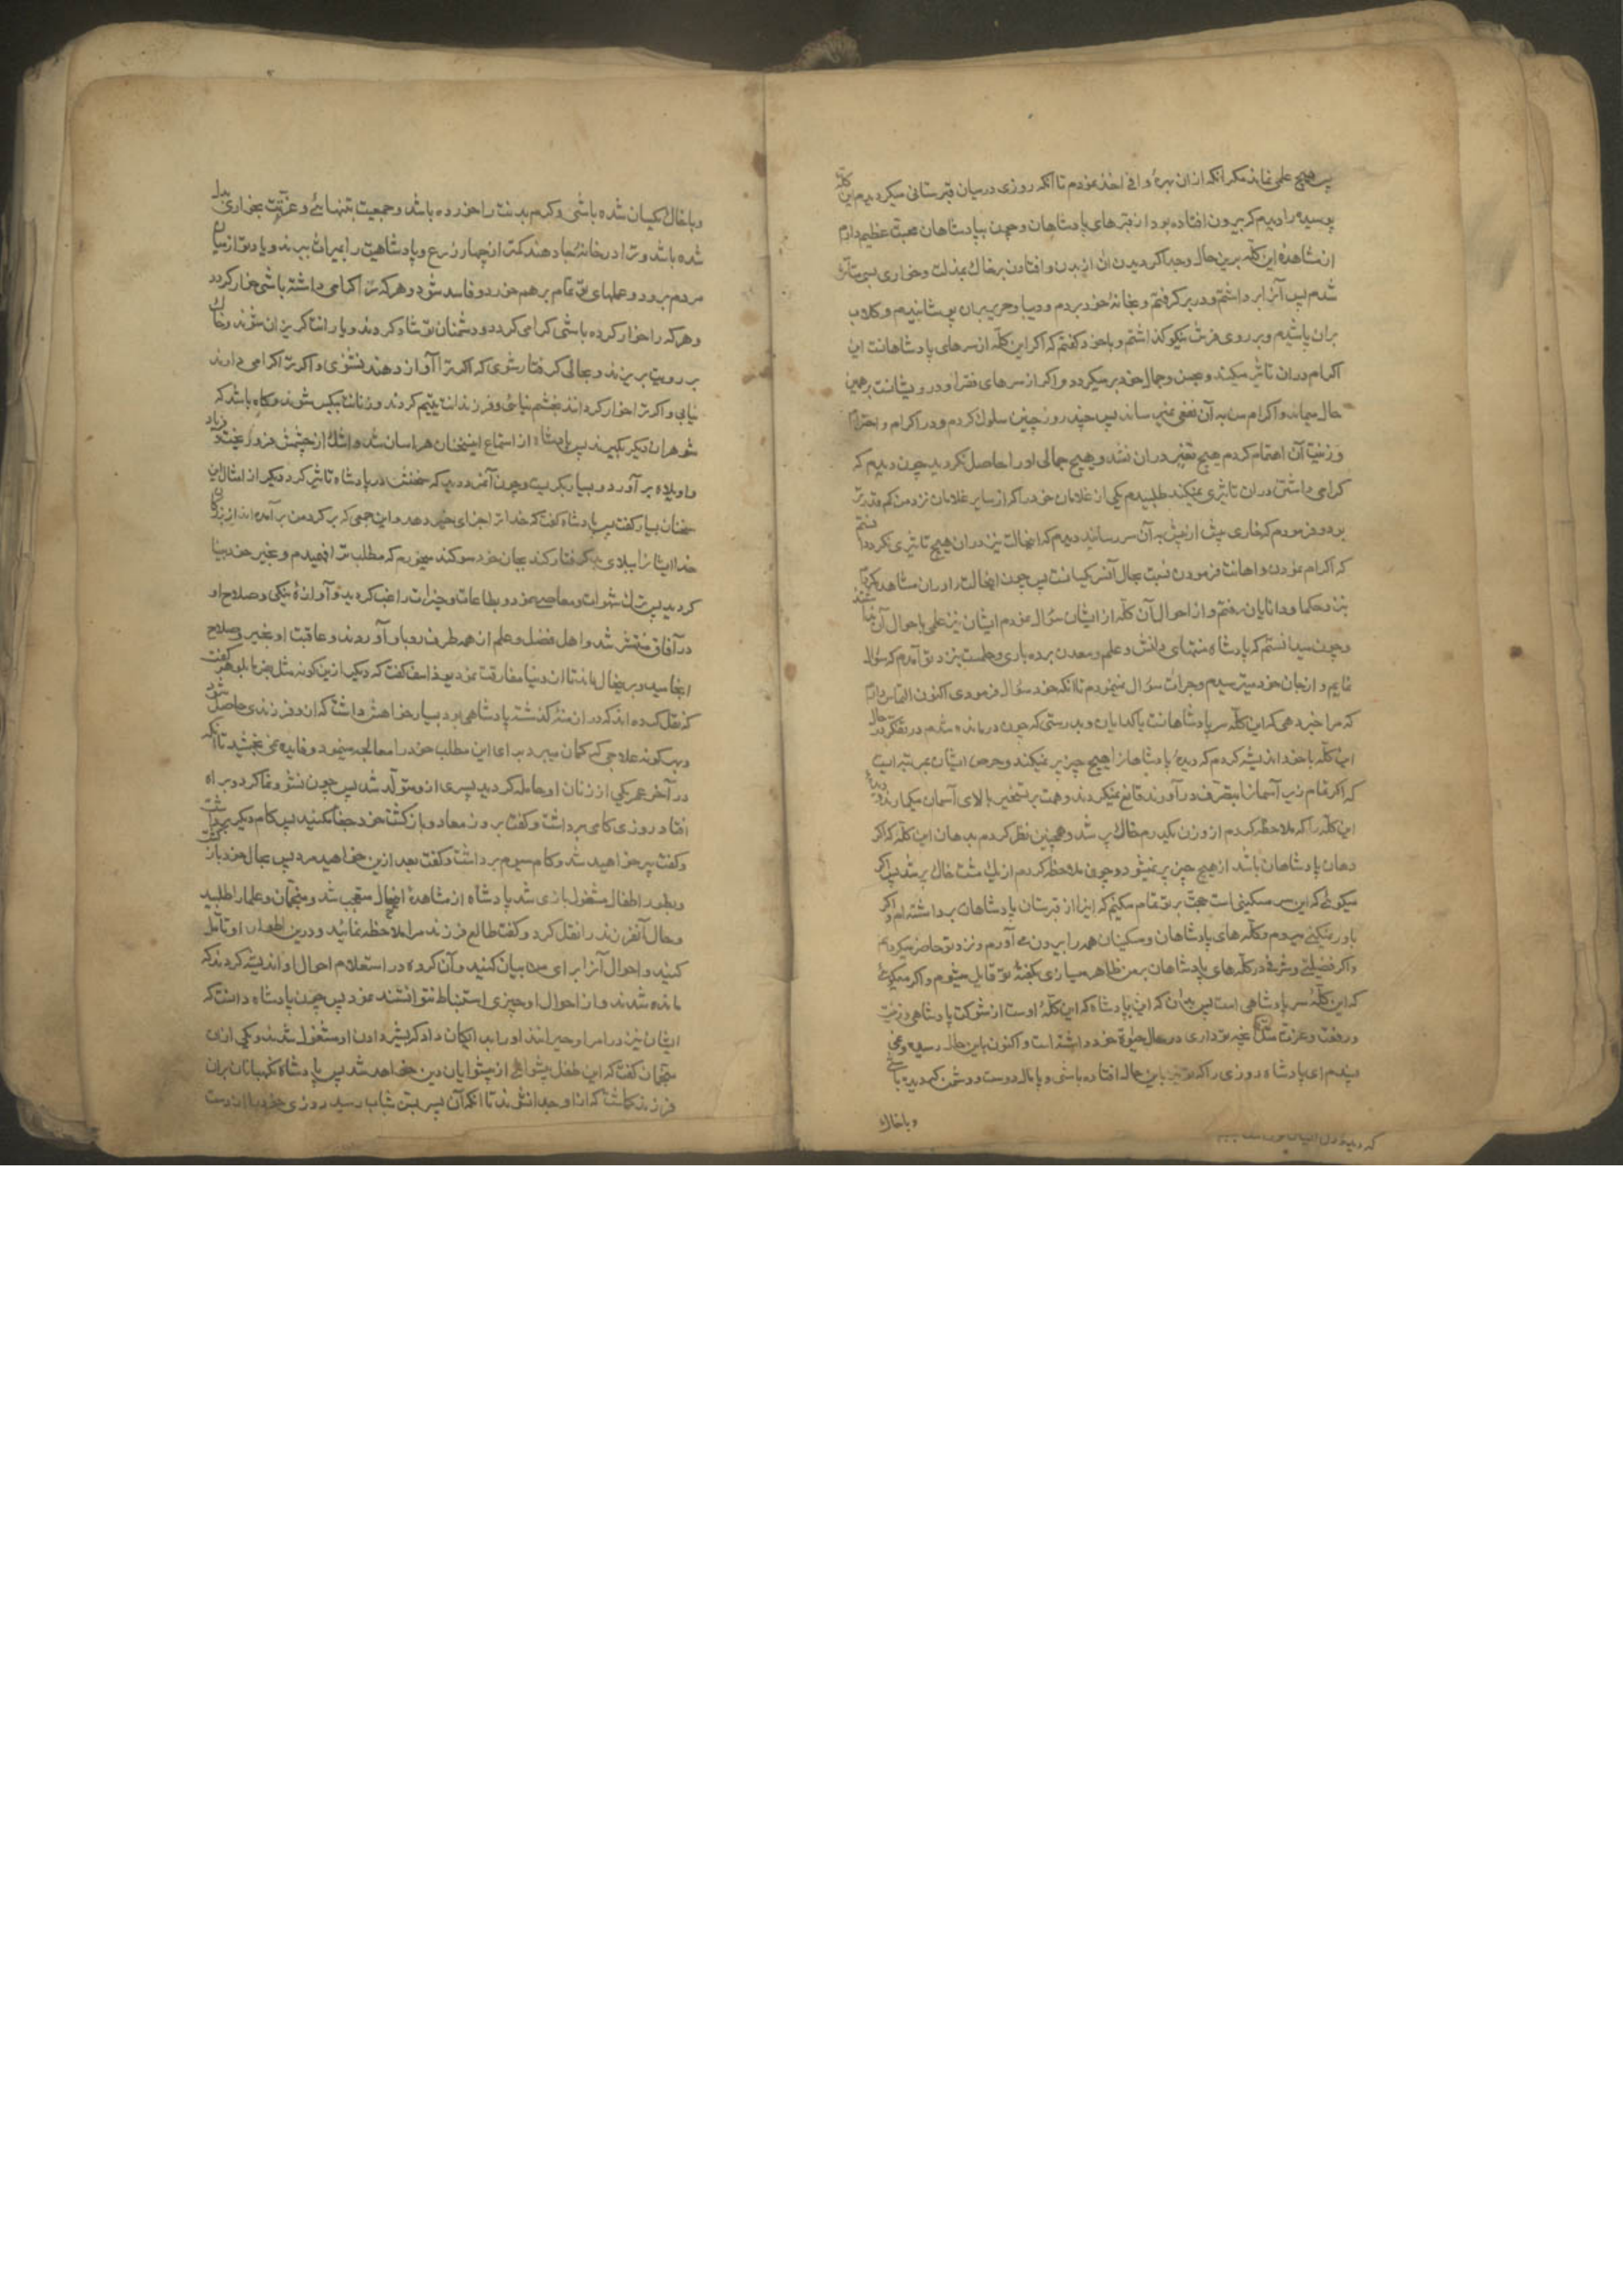 پس هیچ علمی نماند مکر آنکه ازان بهرهٔ وافی اخذ نمودم تا آنکه روزی درمیان قبرستانی میکردیدم این کلهٔ
پوسیده را دیدم که بیرون افتاده بود از قبرهای پادشاهان و چون بپادشاهان محبت عظیم دارم
از مشاهدهٔ این کلّه برین حال و جدا کردیدن آن از بدن و افتادن برخاک بمذلت و خواری بسی متأثر
شدم پس آنرا برداشتم و در بر کرفتم و بخانهٔ خود بردم و دیبا و حریر بران پوشانیدم و کلاب
بران پاشیدم و بر روی فرش نیکو کذاشتم و با خود کفتم که اکر این کلّه از سرهای پادشاهانست این
اکرام دران تاثیر میکند و بحسن و جمال خود برمیکردد و اکر از سرهای فقرا و درویشانست برهمین
حال میماند و اکرام من به آن نفعی نمیرساند پس چند روز چنین سلوک کردم و در اکرام و احترام
و زینت آن اهتمام کردم هیچ تغییر دران نشد و هیچ جمالی اورا حاصل نکردید چون دیدم که
کرامی داشتن دران تاثیری نمیکند طلبیدم یکی از غلامان خود را که از سایر غلامان نزد من کم قدرتر
بود و فرمودم که خاری بیش از پیش به آن سر رسانید دیدم که انحالت نیز دران هیچ تاثیری نکرد دانستم
که اکرام نمودن و اهانت فرمودن نسبت بحال آن سر یکسانست پس چون اینحالت را دران مشاهده کردم
بنزد حکما و دانایان رفتم و از احوال آن کلّه از ایشان سؤال نمودم ایشان نیز علمی باحوال آن نداشتند
و چون میدانستم که پادشاه منتهای دانش و علم و معدن بردباری و حلمست بنزد تو آمدم که سؤال
نمایم و از جان خود میترسیدم و جرات سؤال نمینمودم تا آنکه خود سؤال فرمودی اکنون التماس دارم
که مرا خبر دهی که این کلّه سر پادشاهانست یا کدایان و بدرستی که چون درمانده شدم در تفکر در حال
این کلّه با خود اندیشه کردم که دیدهٔ پادشاهانرا هیچ چیز پر نمیکند و حرص ایشان بمرتبه ایست
که اکر تمام زیر آسمانرا بتصرف درآورند قانع نمیکردند و همت بر تسخیر بالای آسمان میکمارند و دیدهٔ
این کلّه را که ملاحظه کردم از وزن یکدرم خاک پر شد و همچنین نظر کردم بدهان این کلّه که اکر
دهان پادشاهان باشد از هیچ چیز پر نمیشود و چون ملاحظه کردم از یک مشت خاک پر شد پس اکر
میکوئی که این سر مسکینی است حجت بر تو تمام میکنم که اینرا از قبرستان پادشاهان برداشته ام و اکر
باور نمیکنی میروم و کلّه های پادشاهان و مسکینان همه را بیرون می آورم و نزد تو حاضر میکردانم
و اکر فضیلتی و شرفی در کلّه های پادشاهان بر من ظاهر میسازی بکفتهٔ تو قایل میشوم و اکر میکوئی
که این کلّهٔ سر پادشاهی است پس بدان که این پادشاه که این کلّهٔ اوست از شوکت پادشاهی و زینت
و رفعت و عزت مثل آنچه تو داری در حال حیوة خود داشته است و اکنون باین حال رسیده و نمی
پسندم ای پادشاه روزی را که تو نیز باین حال افتاده باشی و پامال دوست و دشمن کردیده باشی
و باخاک
و باخاک یکسان شده باشی و کرم بدنت را خورده باشد و جمعیت بتنهائی و عزّتت بخواری بدل
شده باشد و ترا در خانهٔ جا دهند کمتر از چهار ذرع و پادشاهیت را بمیراث ببرند و یاد تو از میان
مردم برود و عملهای تو تمام برهم خورد و فاسد شود و هرکه را کرامی داشته باشی خوار کردد
و هرکه را خوار کرده باشی کرامی کردد و دشمنان تو شاد کردند و یارانت کریزان شوند و خاک
بر رویت بریزند و بحالی کرفتار شوی که اکر ترا آواز دهند نشنوی و اکر ترا کرامی دارند
نیابی و اکر ترا خوار کردانند بخشم نیائی و فرزندانت یتیم کردند و زنانت بیکس شوند و کاه باشد که
شوهران دیکر بکیرند پس پادشاه از استماع این سخنان هراسان شد و اشک از چشمش فرو ریخت و فریاد
واویلاه برآورد و بسیار بکریست و چون آنمرد دید که سخنش در پادشاه تاثیر کرد دیکر از امثال این
سخنان بسیار کفت پس پادشاه کفت که خدا ترا جزای خیر دهد و این جمعی که بر کرد من برآمده اند از بزرکان
خدا ایشانرا ببلای بد کرفتار کند بجان خود سوکند میخورم که مطلب ترا فهمیدم و بخیر خود بینا
کردید پس ترک شهوات و معاصی نمود و بطاعات و خیرات راغب کردید و آوازهٔ نیکی و صلاح او
در آفاق منتشر شد و اهل فضل و علم از همه طرف رو باو آوردند و عاقبت او بخیر و صلاح
انجامید و بر همینحال ماند تا از دنیا مفارقت نمود یوذاسف کفت که دیکر ازین کونه مثل بفرما بلوهر کفت
که نقل کرده اند که در ازمنهٔ کذشته پادشاهی بود بسیار خواهش داشت که ازو فرزندی حاصل شود
و بهر کونه علاجی که کمان میبرد برای این مطلب خود را معالجه مینمود و فایده نمی بخشید تا آنکه
در آخر عمر یکی از زنان او حامله کردید پسری ازو متولّد شد پس چون نشو و نما کرد و براه
افتاد روزی کامی برداشت و کفت بروز معاد و بازکشت خود جفا میکنید پس کام دیکر برداشت
و کفت پیر خواهید شد و کام سیم برداشت و کفت بعد ازین خواهید مرد پس بحال خود بازکشت
و بطور اطفال مشغول بازی شد پادشاه از مشاهدهٔ اینحال متعجب شد و منجّمان و علما را طلبید
و حال آنفرزند را نقل کرد و کفت طالع فرزند مرا ملاحظه نمائید و درین اطوار او تأمّل
کنید و احوال آنرا برای من بیان کنید و آن کروه در استعلام احوال او اندیشه کردند که
مانده شدند و از احوال او چیزی استنباط نتوانستند نمود پس چون پادشاه دانست که
ایشان نیز در امر او حیرانند او را بدایکان داد که بشیر دادن او مشغول شدند و یکی از
منجّمان کفت که این طفل پیشوائی از پیشوایان دین خواهد شد پس پادشاه نکهبانان بران
فرزند کماشت که از او جدا نشوند تا آنکه آن پسر بسن شباب رسید روزی خود را از دست